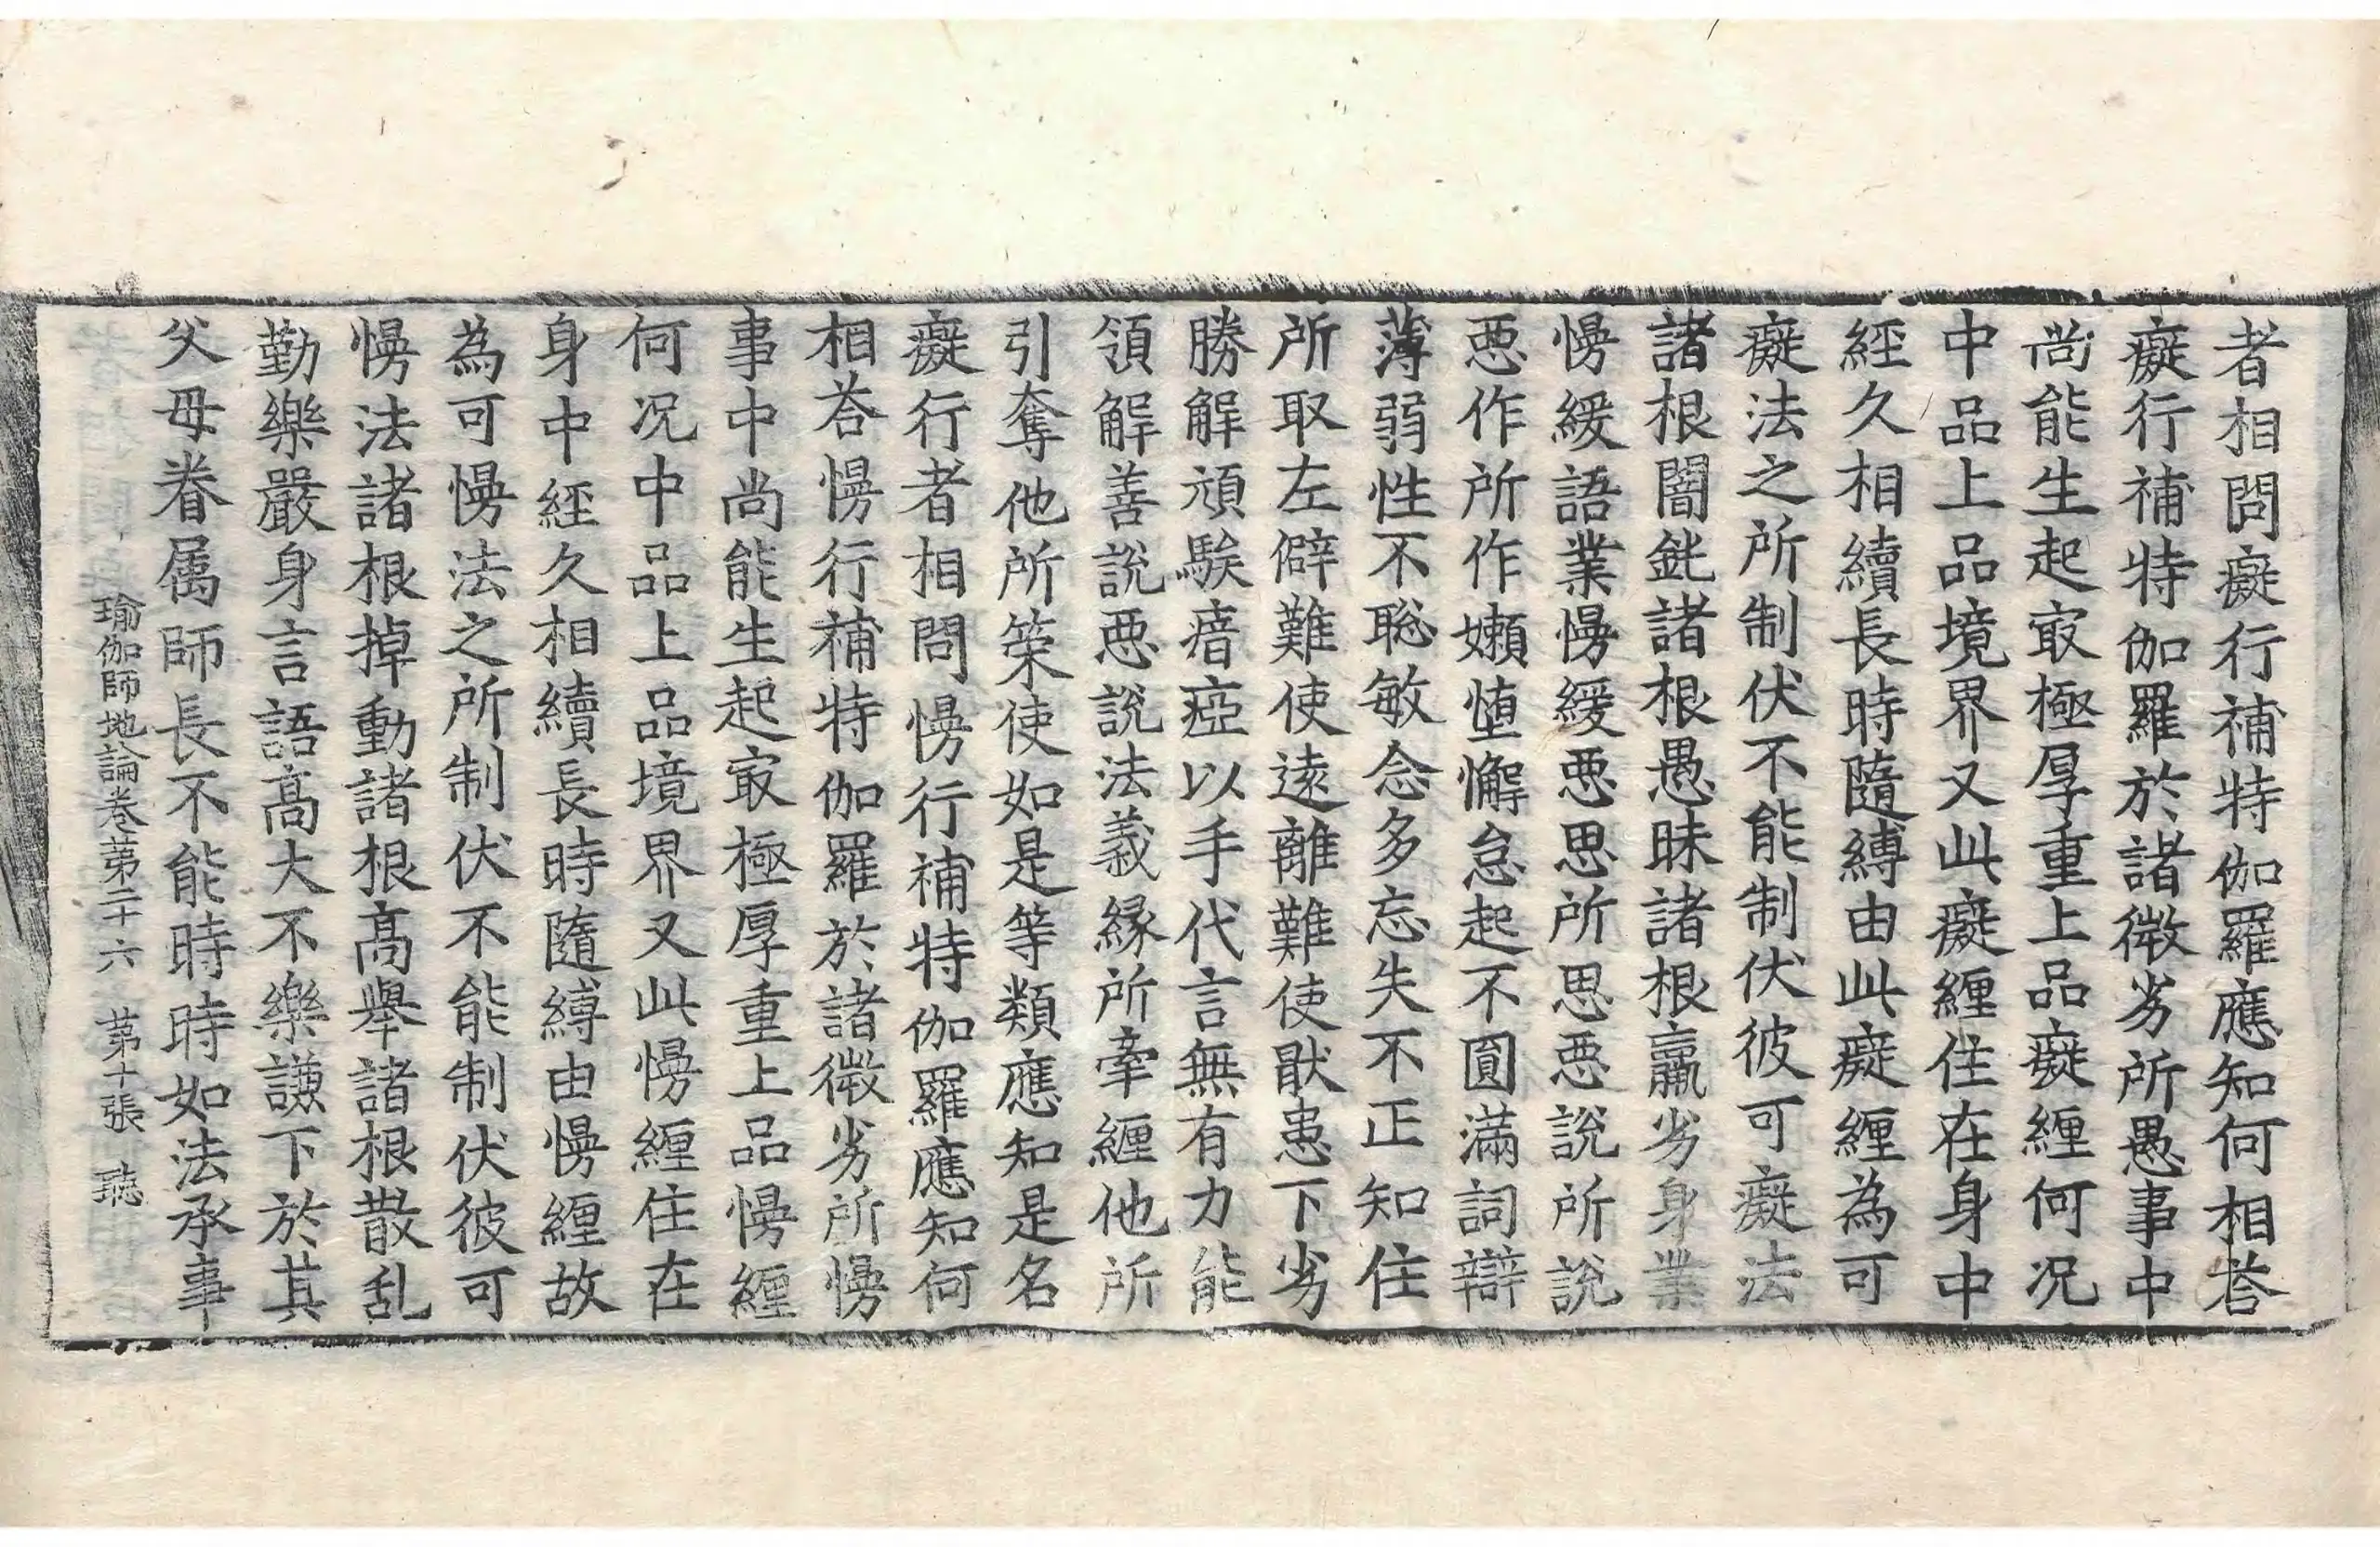 者相問癡行補特伽羅應知何相荅
癡行補特伽羅於諸微劣所愚事中
尚能生起㝡極厚重上品癡纏何況
中品上品境界又此癡纏住在身中
經久相續長時隨縛由此癡纏為可
癡法之所制伏不能制伏彼可癡法
諸根闇鈍諸根愚昧諸根羸劣身業
慢緩語業慢緩惡思所思惡說所說
惡作所作嬾墮懈怠起不圓滿詞辯
薄弱性不聡敏念多忘失不正知住
所取左僻難使遠離難使猒患下劣
勝解頑騃瘖瘂以手代言無有力能
領解善說惡說法義緣所牽纏他所
引奪他所䇿使如是等類應知是名
癡行者相問慢行補特伽羅應知何
相荅慢行補特伽羅於諸微劣所慢
事中尚能生起㝡極厚重上品慢纏
何況中品上品境界又此慢纏住在
身中經久相續長時隨縛由慢纏故
為可慢法之所制伏不能制伏彼可
慢法諸根掉動諸根高舉諸根散乱
勤樂嚴身言語高大不樂謙下於其
父母眷属師長不能時時如法承事
瑜伽師地論卷苐二十六　苐十張　聴